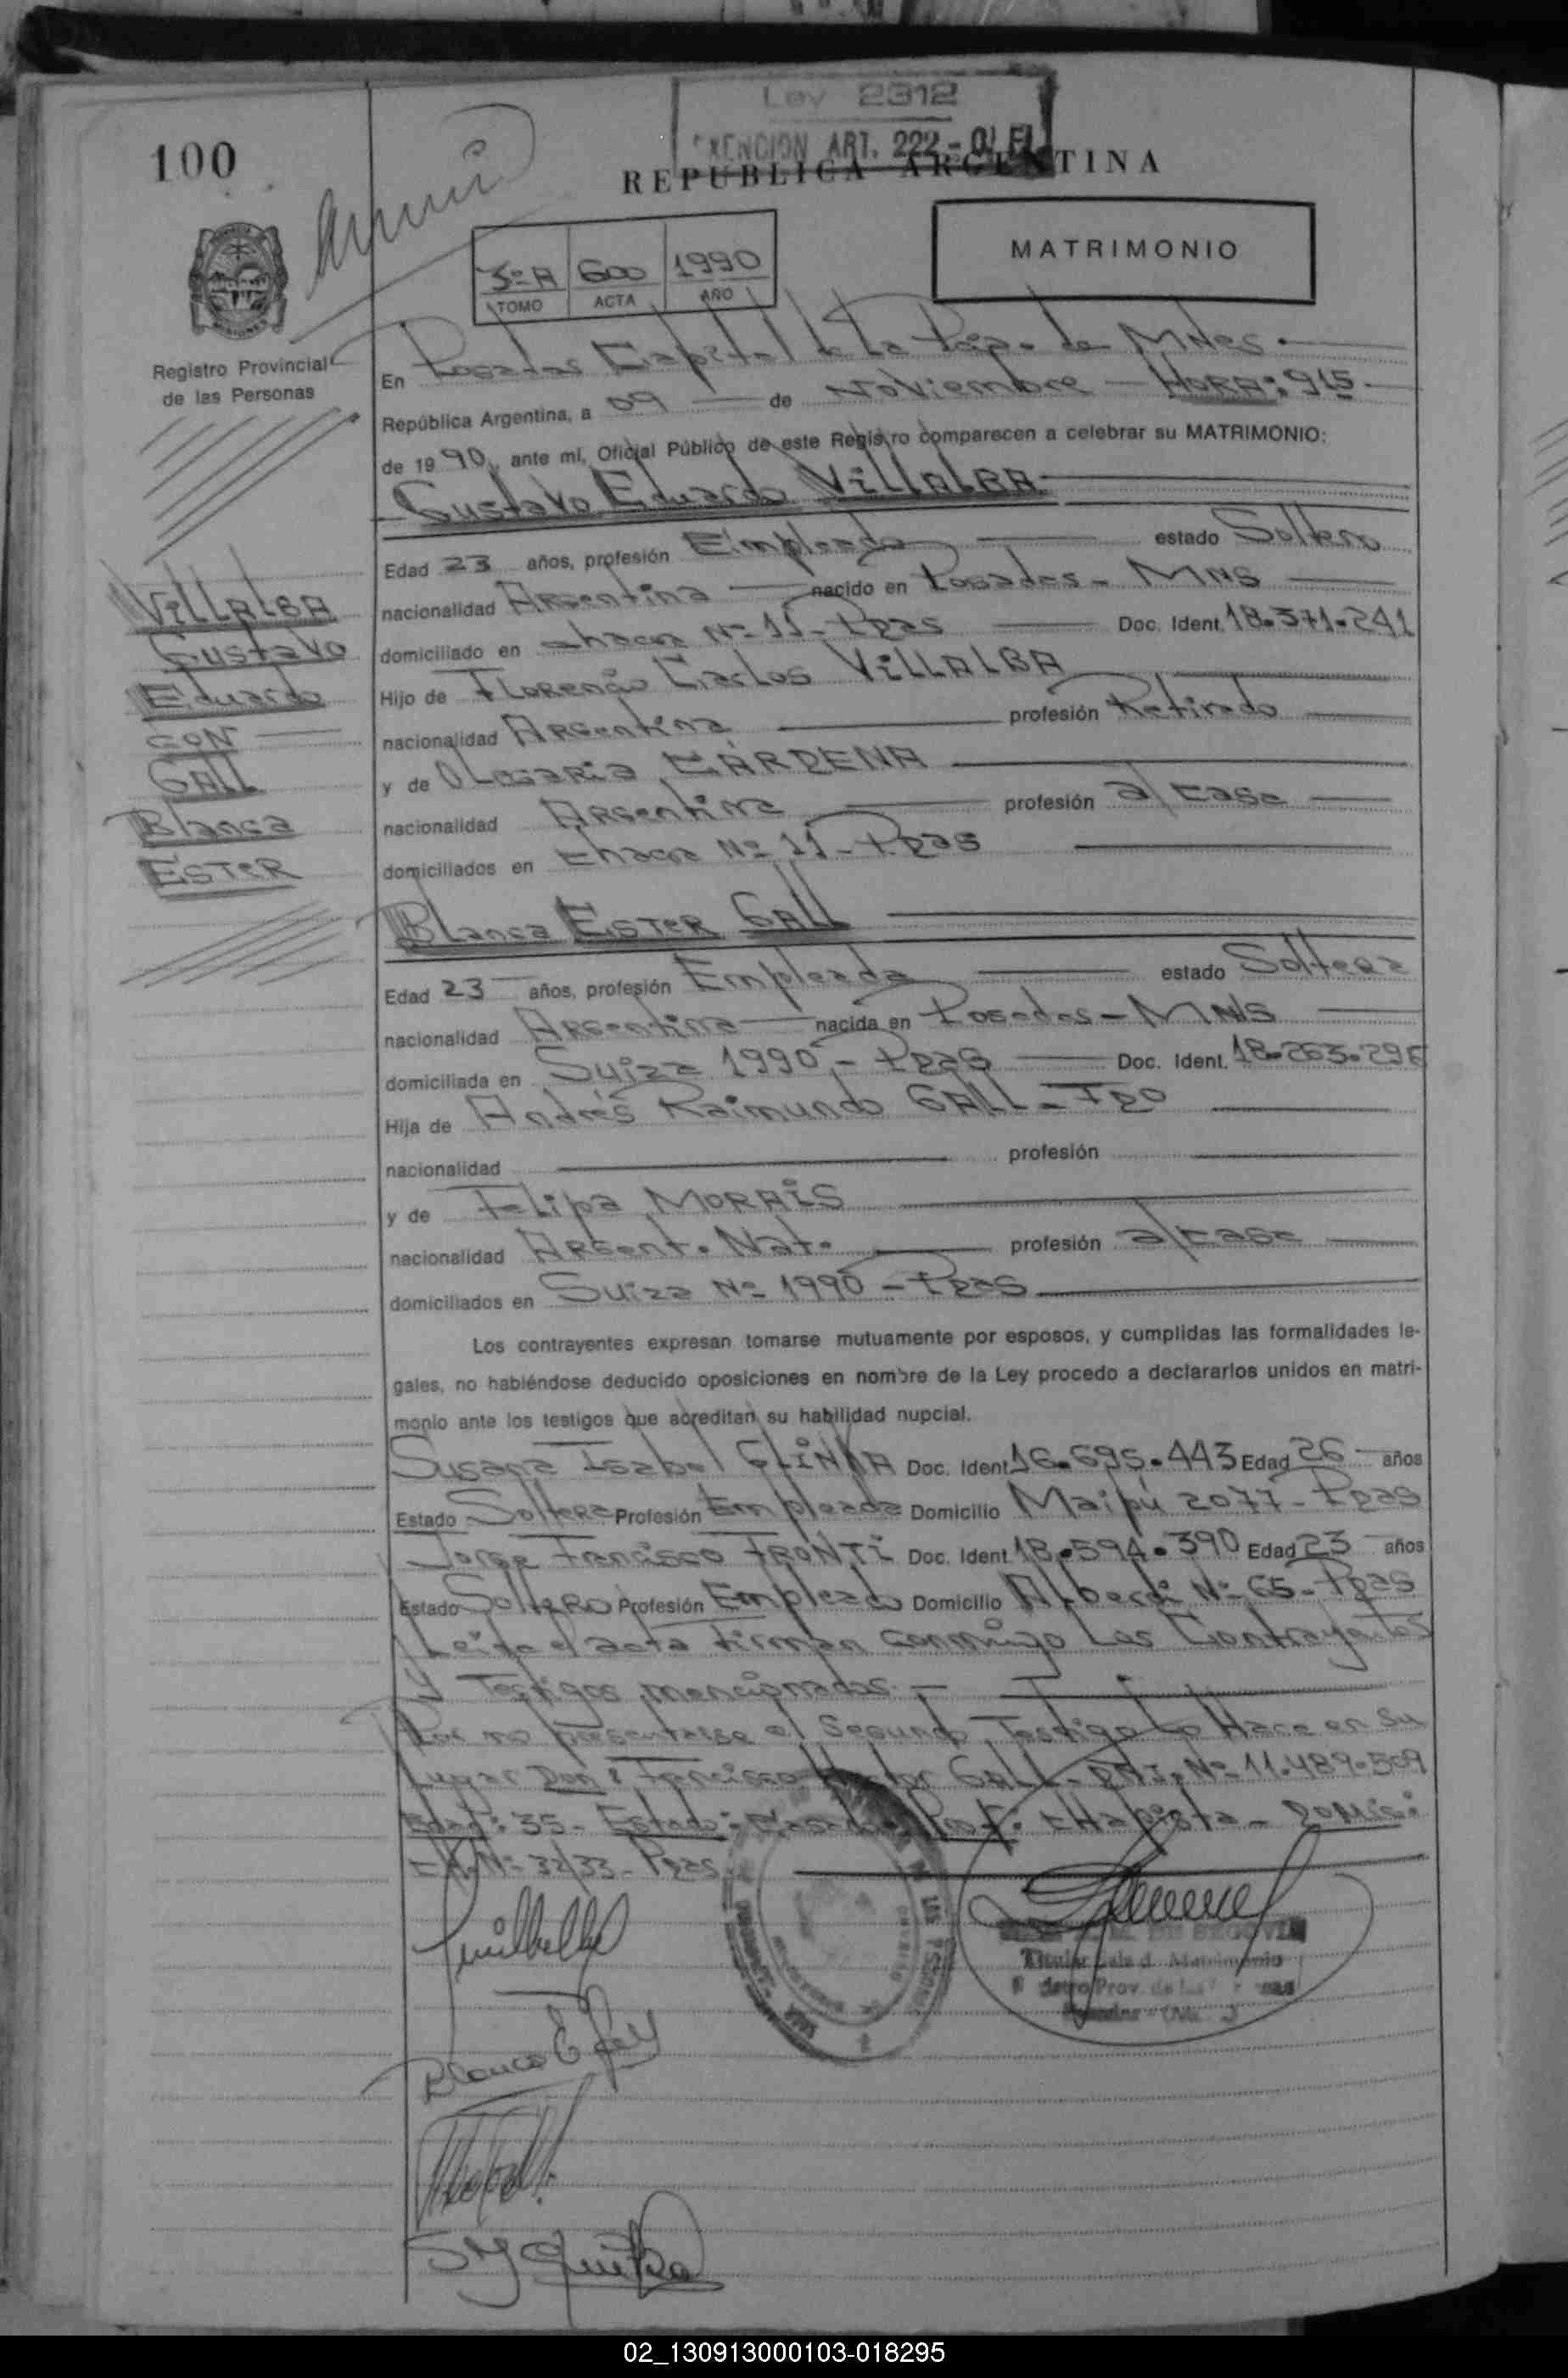 Ley 2312
EXENCION ART. 222 -
100
REPUBLICA ARGENTINA
MATRIMONIO
3º A 600 1990
TOMO ACTA AÑO
Registro Provincial
de las Personas
En Posadas Capital de la Pcia. de Mnes.
República Argentina, a 09 de Noviembre - HORA: 915
de 1990, ante mí, Oficial Público de este Registro comparecen a celebrar su MATRIMONIO:
Gustavo Eduardo VILLALBA
Edad 23 años, profesión Empleado estado Soltero
nacionalidad Argentina nacido en Posadas - MNS
domiciliado en chacra Nº 11 - Pdas Doc. Ident. 18.371.241
Hijo de Florencio Carlos VILLALBA
nacionalidad Argentina profesión Retirado
y de Olegaria CÁRDENA
nacionalidad Argentina profesión a/casa
domiciliados en chacra Nº 11 - Pdas
VILLALBA
Gustavo
Eduardo
CON
GALL
Blanca
ESTER
Blanca ESTER GALL
Edad 23 años, profesión Empleada estado Soltera
nacionalidad Argentina nacida en Posadas - MNS
domiciliada en Suiza 1990 - Pdas Doc. Ident. 18.263.296
Hija de Andrés Raimundo GALL - Fdo
nacionalidad profesión
y de Felipa MORAIS
nacionalidad Argent. Nat. profesión a/casa
domiciliados en Suiza Nº 1990 - Pdas
Los contrayentes expresan tomarse mutuamente por esposos, y cumplidas las formalidades le-
gales, no habiéndose deducido oposiciones en nombre de la Ley procedo a declararlos unidos en matri-
monio ante los testigos que acreditan su habilidad nupcial.
Susana Isabel GLINKA Doc. Ident. 16.695.443 Edad 26 años
Estado Soltera Profesión Empleada Domicilio Maipú 2077 - Pdas
Jorge Francisco FRONTI Doc. Ident. 18.594.390 Edad 23 años
Estado Soltero Profesión Empleado Domicilio Alberdi Nº 65 - Pdas
Leída el acta firman conmigo Los Contrayentes
y Testigos mencionados. -
Por no presentarse el Segundo Testigo Lo Hace en Su
Lugar Don: Francisco Hector GALL - DNI. Nº 11.489.509
Edad: 35 - Estado: Casado Prof: CHapista - Domic:
CH. Nº 32/33 - Pdas
Blanca E. Gall
DE SEGOVIA
Titular Sala d. Matrimonio
Prov. de las
02_130913000103-018295